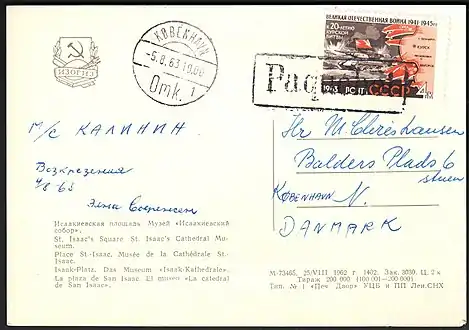 ИЗОГИЗ
KØBENHAVN
-5.8.63 19.00
Omk. 1
ВЕЛИКАЯ ОТЕЧЕСТВЕННАЯ ВОЙНА 1941-1945гг.
к 20-летию
КУРСКОЙ
БИТВЫ
КУРСК
1963 ПОЧТА СССР 4к
Paquebot
М/С КАЛИНИН
4/8 63
Hr M.
Balders Plads 6
stuen
KØBENHAVN N.
DANMARK
Исаакиевская площадь. Музей «Исаакиевский
собор».
St. Isaac's Square St. Isaac's Cathedral Mu-
seum.
Place St.-Isaac. Musée de la Cathédrale St.-
Isaac.
Isaak-Platz. Das Museum «Isaak-Kathedrale».
La plaza de San Isaac. El museo «La catedral
de San Isaac».
М-73465. 25/VIII 1962 г. 1402. Зак. 3030. Ц. 2 к.
Тираж 200 000 (100 001—200 000)
Тип. № 1 «Печ. Двор» УЦБ и ПП Лен.СНХ